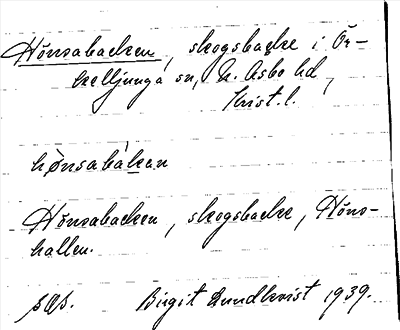 Hönsabacken, skogsbacke i Ör-
kelljunga sn, N. Asbo hd,
Krist. l.
hönsabakan
Hönsabacken, skogsbacke, Höns-
hallen.
Birgit Lundkvist 1939.